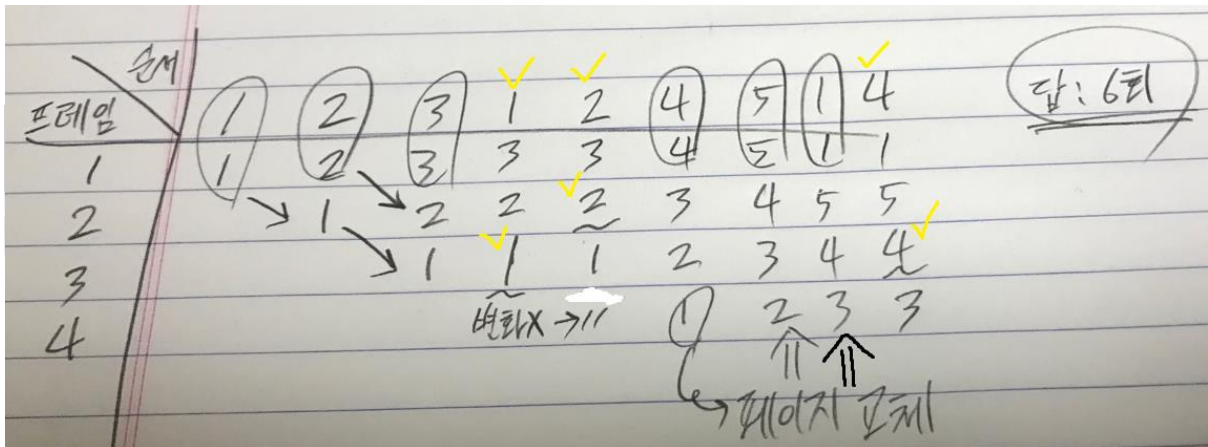 순서
프레임 1 2 3 1 2 4 5 1 4 답: 6회
1 1 2 3 3 3 4 5 1 1
2 1 2 2 2 3 4 5 5
3 1 1 1 2 3 4 4
4 1 2 3 3
변화X → 〃
페이지 교체